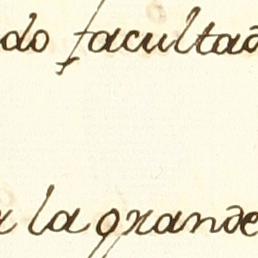 do facultad
a la grande